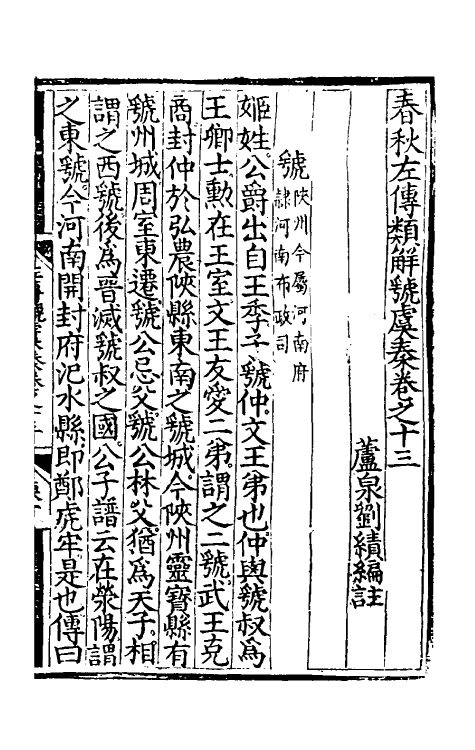 春秋左傳類解虢虞秦卷之十三
蘆泉劉績編註
虢陝州今屬河南府
隸河南布政司
姬姓公爵出自王季子虢仲文王弟也仲與虢叔爲
王卿士勲在王室文王友愛二弟謂之二虢武王克
商封仲於弘農陜縣東南之虢城今陜州靈寳縣有
虢州城周室東遷虢公忌父虢公林父猶爲天子相
謂之西虢後爲晋滅虢叔之國公子譜云在滎陽謂
之東虢今河南開封府汜水縣即鄭虎牢是也傳曰